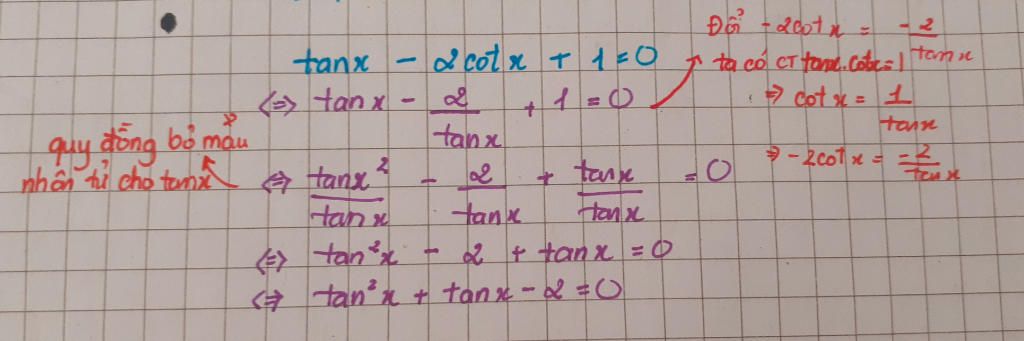 tanx - 2cotx + 1 = 0
⇔ tanx - 2/tanx + 1 = 0
⇔ tanx²/tanx - 2/tanx + tanx/tanx = 0
⇔ tan²x - 2 + tanx = 0
⇔ tan²x + tanx - 2 = 0
quy đồng bỏ mẫu
nhân tử cho tanx
Đổi -2cotx = -2/tanx
ta có CT tanx.cotx=1
⇒ cotx = 1/tanx
⇒ -2cotx = -2/tanx